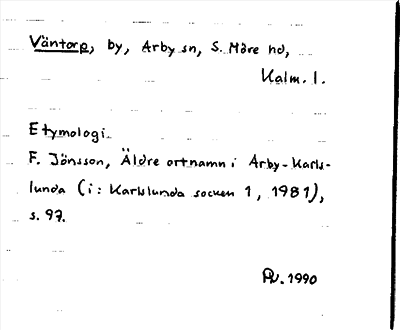 Väntorp, by, Arby sn, S. Möre hd,
Kalm. l.
Etymologi
F. Jönsson, Äldre ortnamn i Arby-Karls-
lunda (i: Karlslunda socken 1, 1981),
s. 97.
1990